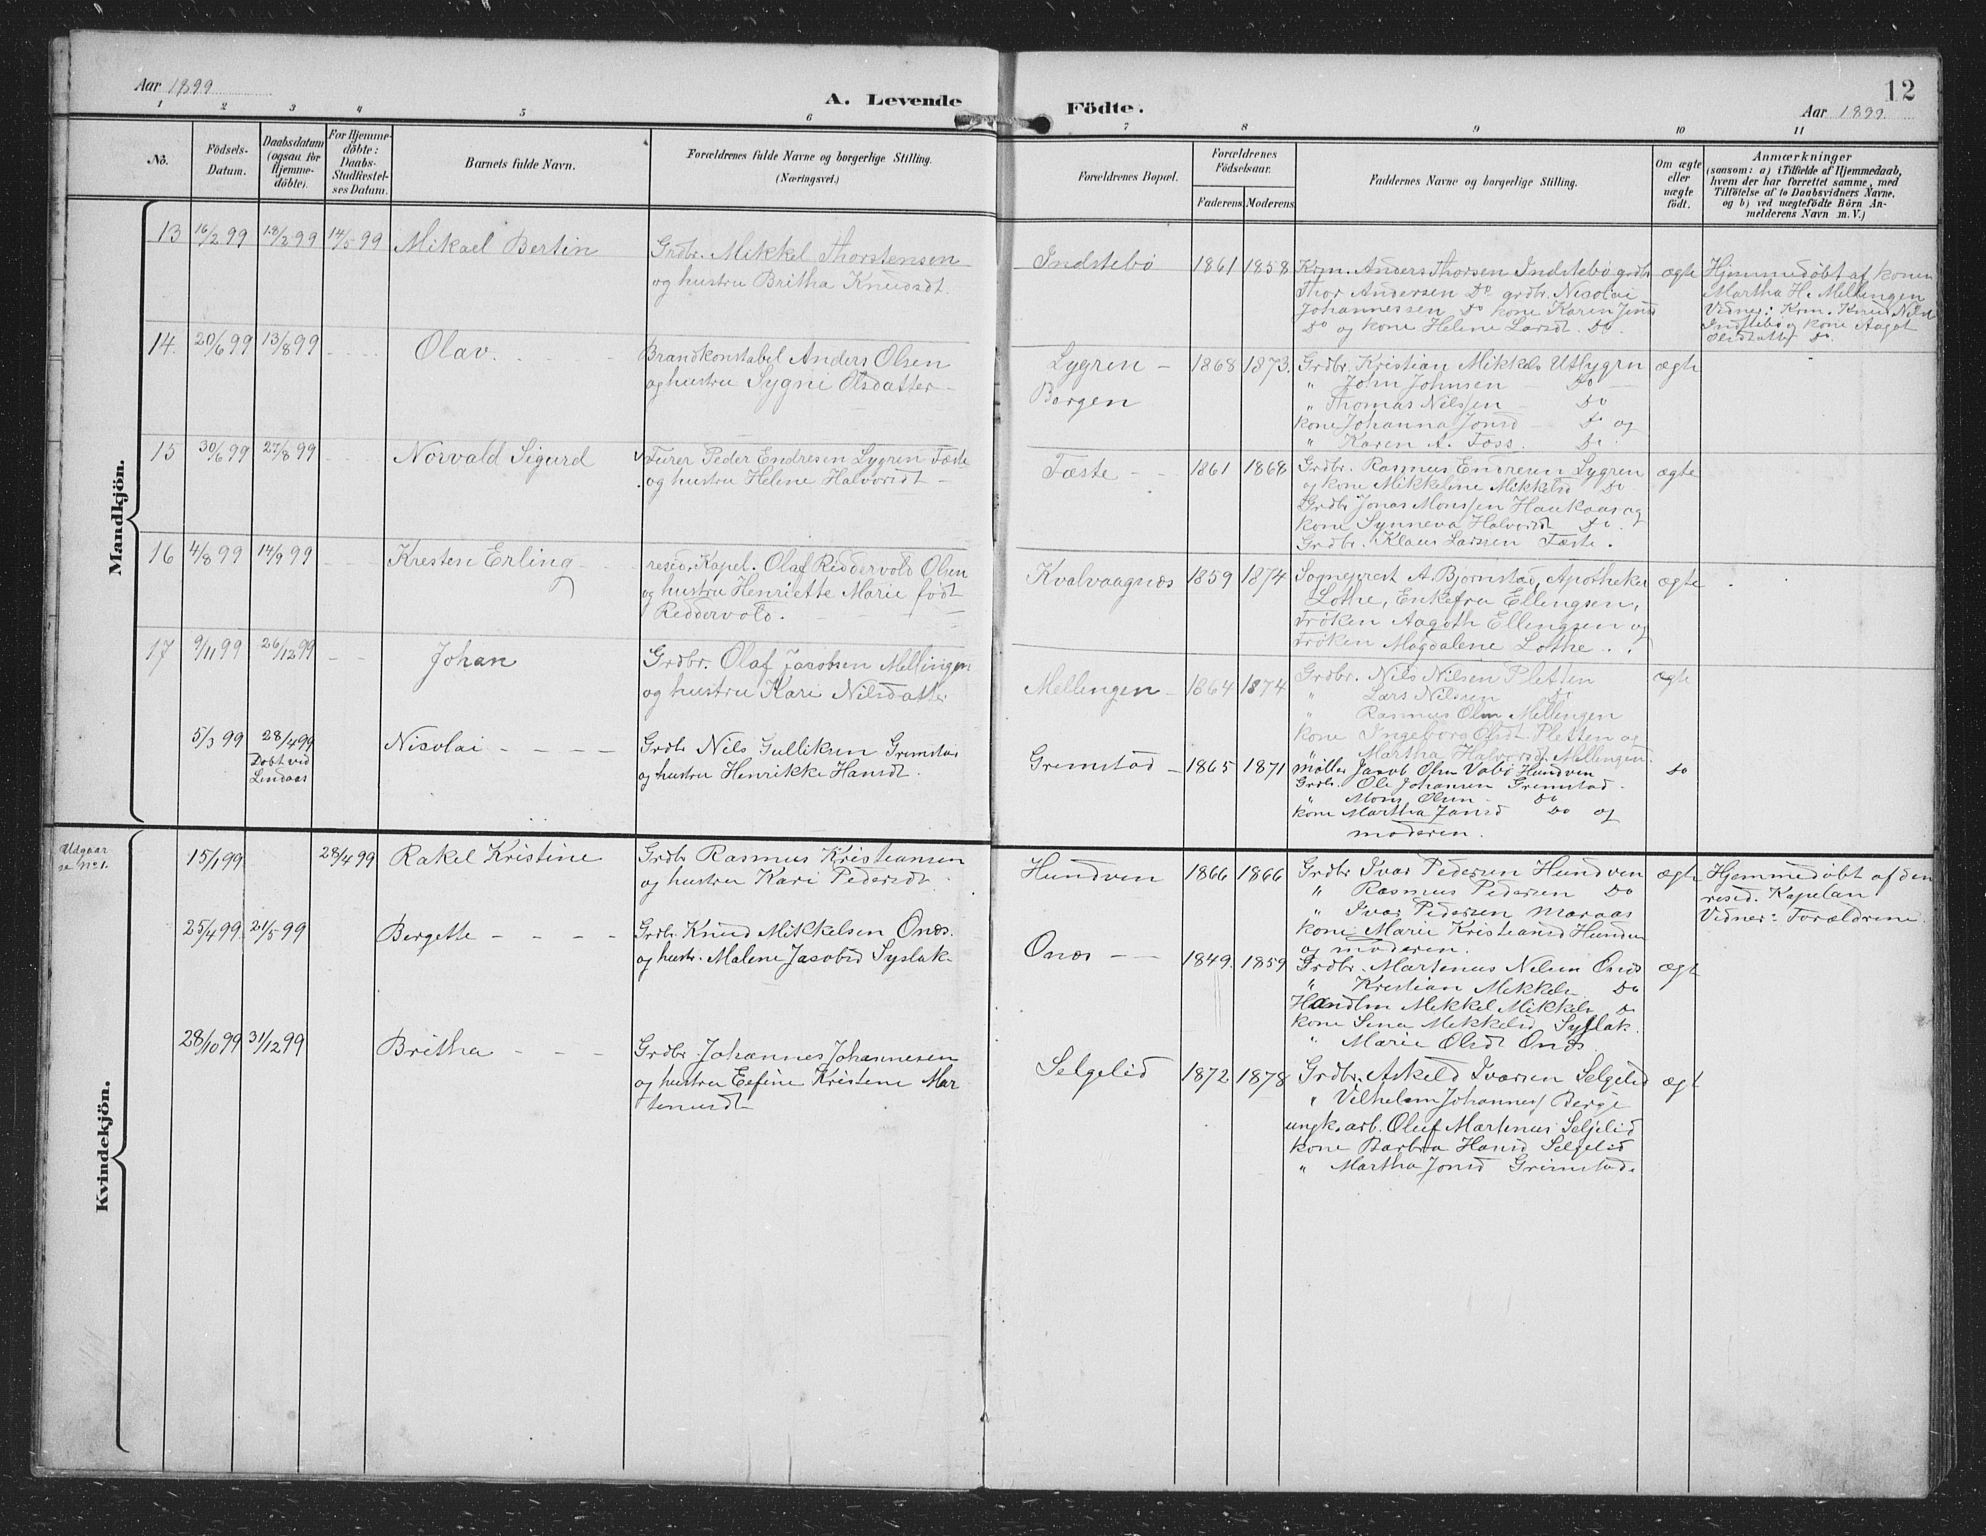 Aar 1899
A. Levende Födte.
12
Aar 1899
1 2 3 4 5 6 7 8 9 10 11
No.
Födsels-
Datum.
Daabsdatum
(ogsaa for
Hjemme-
döbte).
For Hjemme-
döbte:
Daabs-
Stadfæstel-
ses Datum.
Barnets fulde Navn.
Forældrenes fulde Navne og borgerlige Stilling.
(Næringsvei.)
Forældrenes Bopæl.
Forældrenes
Födselsaar.
Faderens. Moderens.
Faddernes Navne og borgerlige Stilling.
Om ægte
eller
uægte
födt.
Anmærkninger
(saasom: a) i Tilfælde af Hjemmedaab,
hvem der har forrettet samme, med
Tilföielse af to Daabsvidners Navne,
og b) ved uægtefödte Börn An-
melderens Navn m. V.)
Mandkjön.
13 16/2 99 18/2 99 14/5 99 Mikael Bertin
Grdbr. Mikkel Thorstensen
og hustru Britha Knudsdt.
Indstebö 1861 1858
Krm. Anders Thorsen Indstebö grdbr
Thor Andersen Do grdbr. Nicolai
Johannessen Do kone Karen Jensd
Do og kone Helene Larsdt. Do.
ægte
Hjemmedöbt af konen
Martha H. Mellingen
Vidner: Krm. Knud Nils
Indstebö og kone Aagot
Olsdatter Do.
14. 20/6 99 13/8 99 Olav.
Brandkonstabel Anders Olsen
og hustru Sygni Olsdatter
Lygren
Bergen
1868 1873.
Grdbr. Kristian Mikkels Utlygrn
" John Johnsen Do
" Thomas Nilssen Do
kone Johanna Jonsd Do og
" Karen A. Foss. Do.
ægte
15 30/6 99 27/8 99 Norvald Sigurd
Furer Peder Endresen Lygren Fæste
og hustru Helene Halvorsdt
Fæste 1861 1868
Grdbr. Rasmus Endresen Lygren
og kone Mikkeline Mikkelsd Do
Grdbr Jonas Monssen Haukaas og
kone Synneva Halvorsdt Do.
Grdbr. Klaus Larssen Fæste.
ægte
16 4/8 99 14/9 99 Kresten Erling
resid. Kapel. Olaf Riddervold Olsen
og hustru Henriette Marie födt
Riddervold.
Kvalvaagnæs 1859 1874
Sogneprest A. Bjørnstad, Apotheker
Lothe, Enkefru Ellengsen,
Fröken Aagoth Ellengsen og
Fröken Magdalene Lothe.
ægte
17 9/11 99 26/12 99 Johan
Grdbr. Olaf Jacobsen Mellingen
og hustru Kari Nilsdatter
Mellingen 1864 1874
Grdbr. Nils Nilsen Pletten
" Lars Nilssen Do
" Rasmus Olsn Mellingen
kone Ingeborg Olsdt Pletten og
" Martha Halvorsdt Mellingen.
ægte
5/3 99 28/4 99
Döbt ved
Lindaas
Nicolai
Grdbr Nils Gulliksen Gremstad
og hustru Henrikke Hansdt.
Gremstad 1865 1871
Møller Jacob Olsn Vabö Hundven
Grdbr. Ole Johansen Gremstad
" Mons Olsen Do
kone Martha Jansd Do og
moderen.
do
Kvindekjön.
Udgaar
se No 1.
15/1 99 28/4 99 Rakel Kristine
Grdbr Rasmus Kristiansen
og hustru Kari Pedersdt
Hundven 1866 1866
Grdbr Ivar Pedersen Hundven
" Rasmus Pedersen Do
" Ivar Pedersen Maraas
kone Marie Kristiansd Hundven
og moderen.
ægte
Hjemmedöbt af den
resid. Kapelan
Vidner: Forældrene.
25/4 99 21/5 99 Bergette
Grdbr. Knud Mikkelsen Onæs.
og hustr. Malene Jacobsd Syslak
Onæs 1849. 1859
Grdbr. Martinus Nilsen Onæs
" Kristian Mikkels Do
Handlm Mikkel Mikkels Do
kone Sina Mikkelsd Syslak.
" Marie Olsdt Onæs.
ægt
28/10 99 31/12 99 Britha
Grdbr. Johannes Johannesen
og hustru Eefine Kristine Mar
tenusdt
Selgelid 1872 1878
Grdbr. Askeld Ivarsen Selgelid
" Vilhelm Johannes Berge
ungk. arb. Oluf Martinus Seljelid
kone Barbra Hansd Selgelid
" Martha Jonsd Grimstad.
ægt